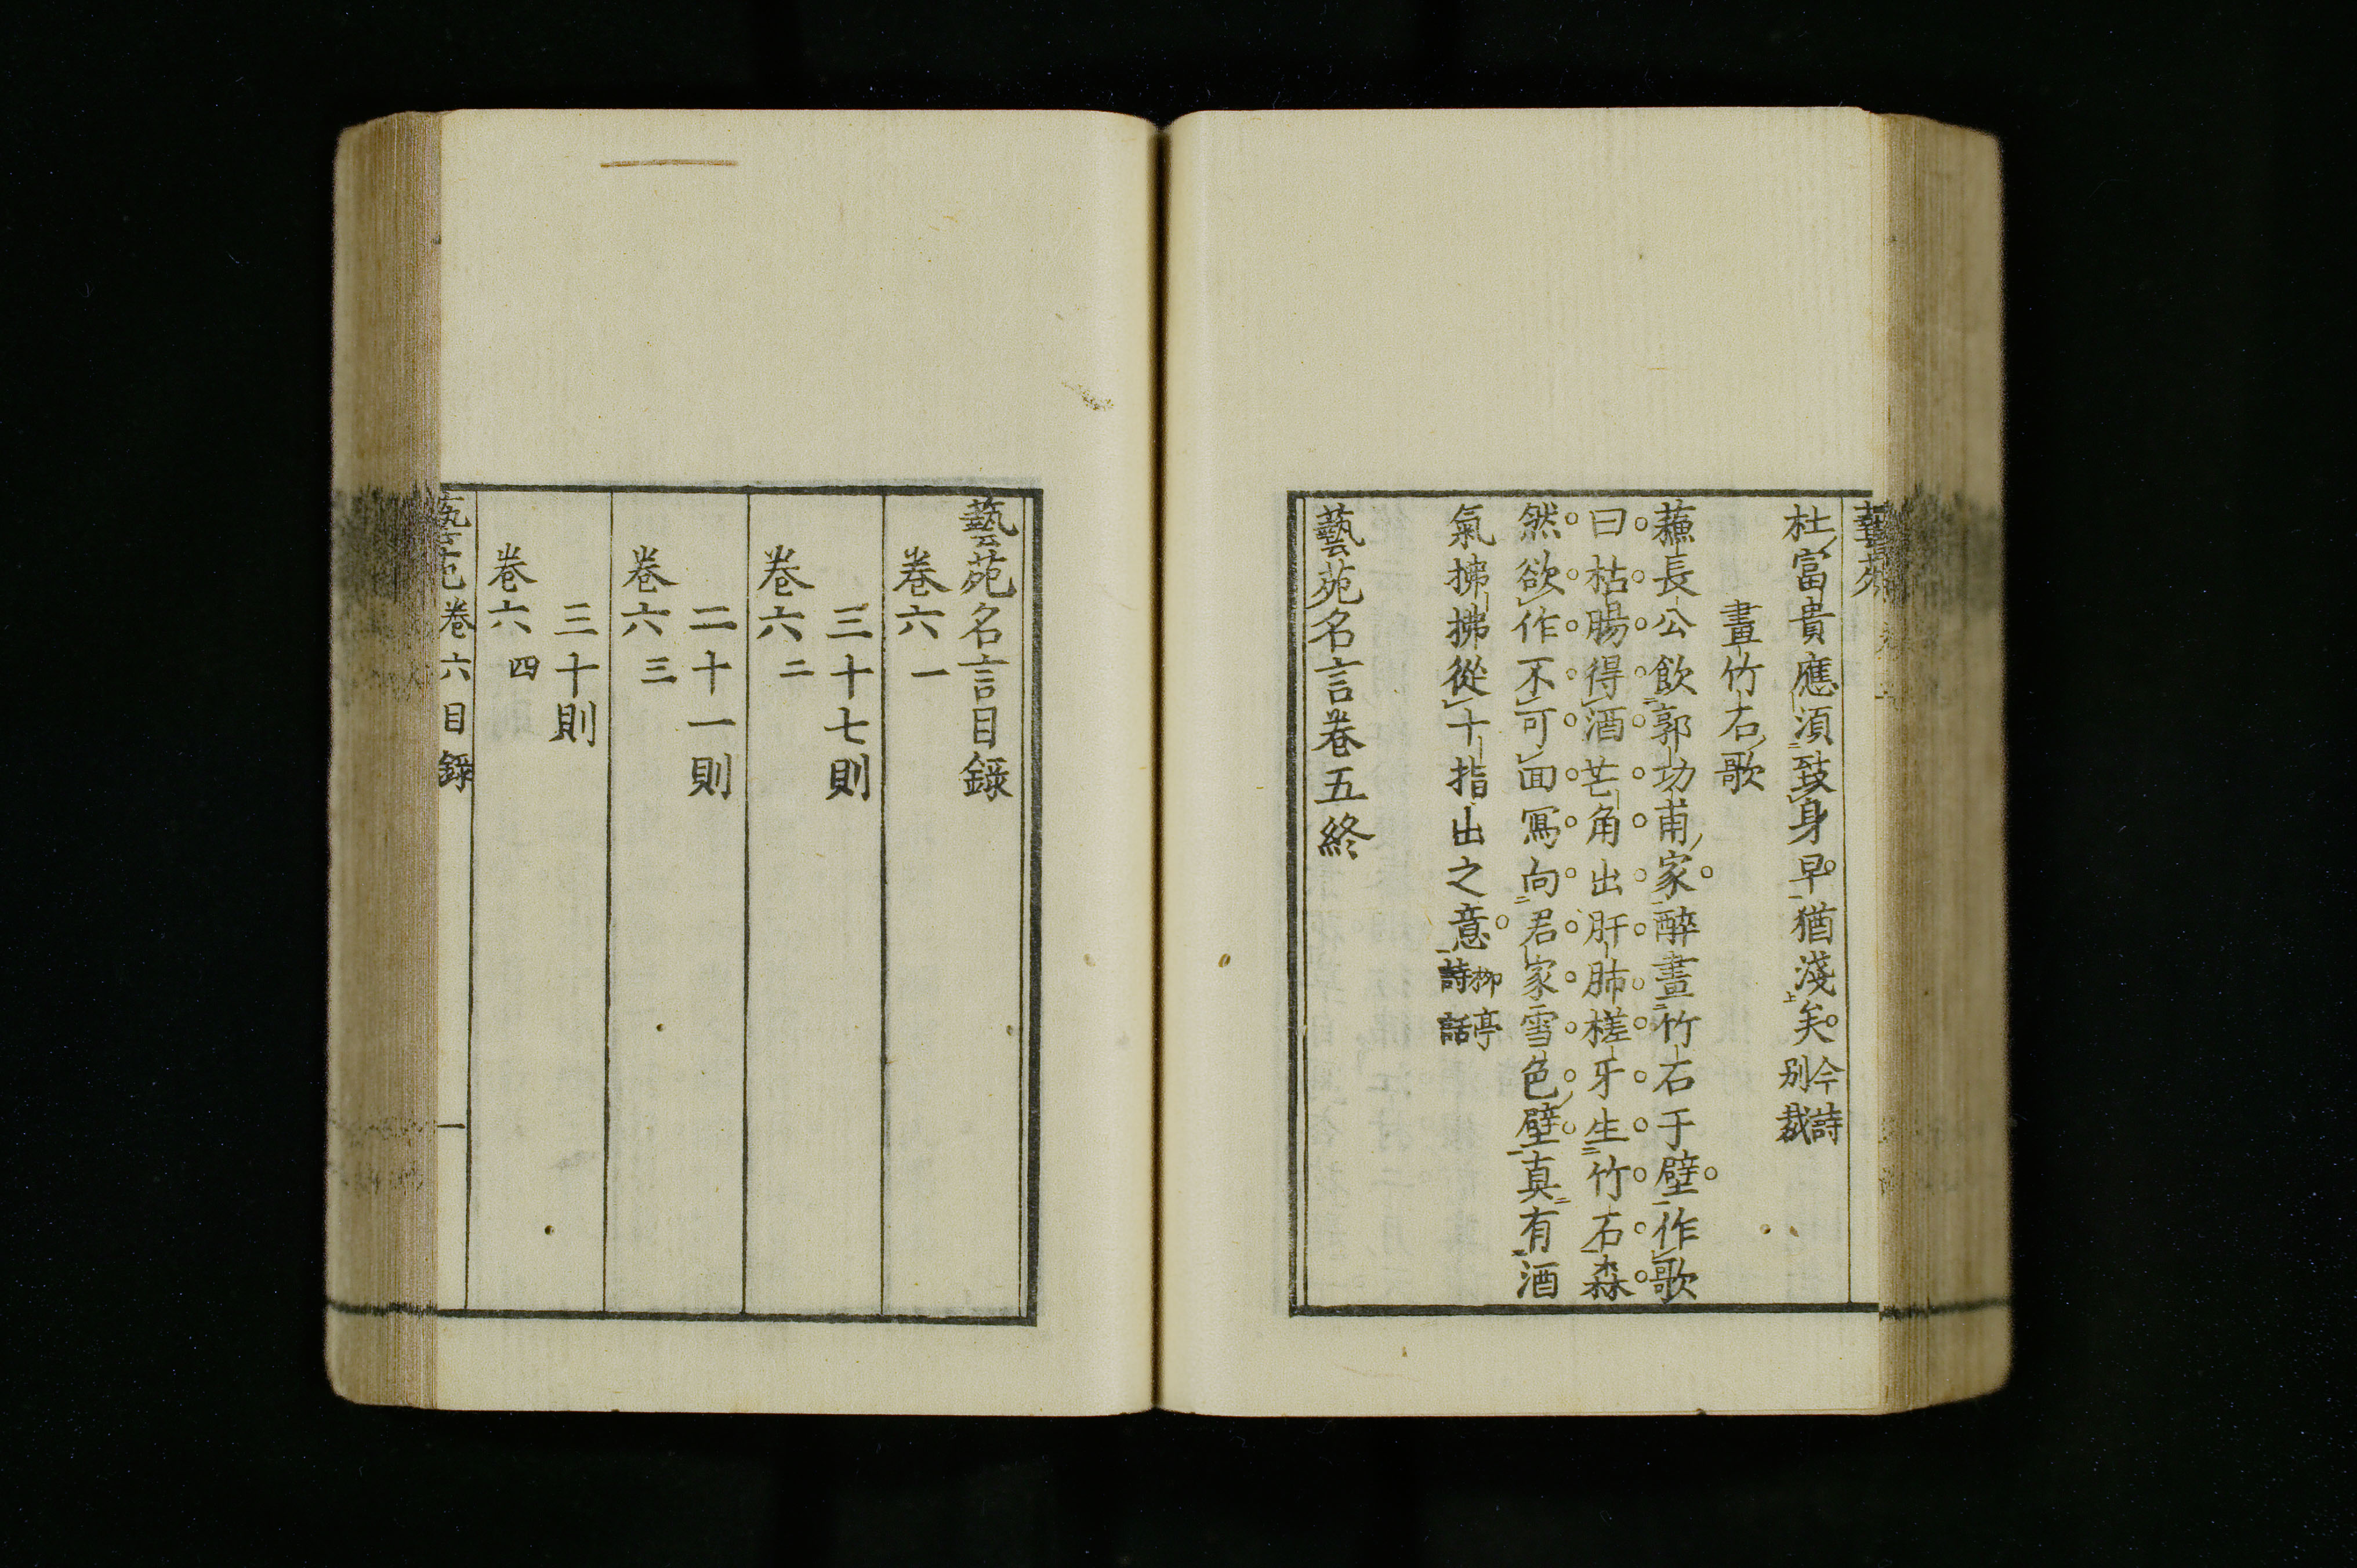 藝苑
杜富貴應須致身早猶淺矣今詩別裁
畫竹石歌
蘓長公飲郭功甫家醉畫竹石于壁作歌
曰枯腸得酒芒角出肝肺槎牙生竹石森
然欲作不可面寫向君家雪色壁真有酒
氣拂拂從十指出之意柳亭詩話
藝苑名言卷五終
藝苑名言目錄
卷六一
三十七則
卷六二
二十一則
卷六三
三十則
卷六四
藝苑卷六目錄 一